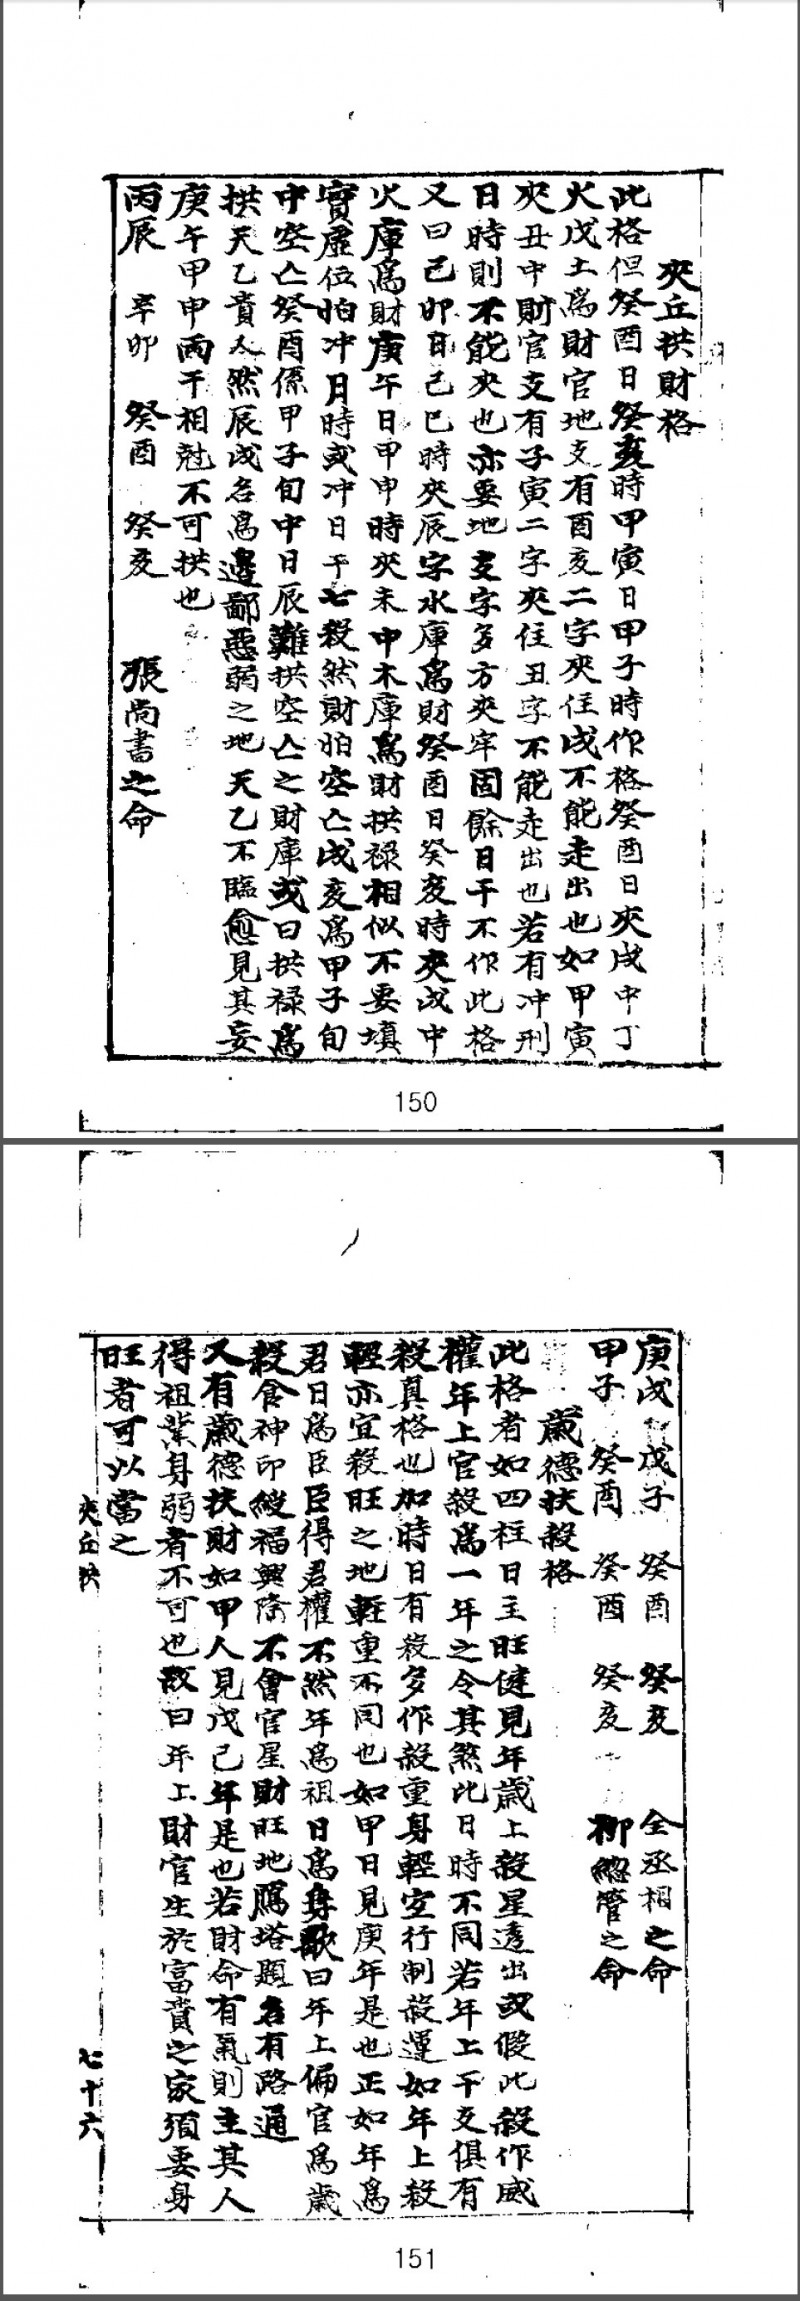 夾丘拱財格
此格但癸酉日癸亥時甲寅日甲子時作格癸酉日夾戌中丁
火戊土為財官地支有酉亥二字夾住戌不能走出也如甲寅
夾丑中財官支有子寅二字夾住丑字不能走出也若有冲刑
日時則不能夾也亦要地支字多方夾牢固餘日干不作此格
又曰己卯日己巳時夾辰字水庫為財癸酉日癸亥時夾戌中
火庫為財庚午日甲申時夾未中木庫為財拱禄相似不要填
實虛位怕冲日時或冲日干七殺然財怕空亡戌亥為甲子旬
中空亡癸酉係甲子旬中日辰難拱空亡之財庫或曰拱禄為
拱天乙貴人然辰戌名為邊鄙惡弱之地天乙不臨愈見其妄
庚午甲申丙干相尅不可拱也
丙辰 辛卯 癸酉 癸亥 張尚書之命
150
庚戌 戊子 癸酉 癸亥 全丞相之命
甲子 癸酉 癸酉 癸亥 柳總管之命
歲德扶殺格
此格者如四柱日主旺健見年歲上殺星透出或假此殺作威
權年上官殺為一年之令其煞此日時不同若年上干支俱有
殺真格也加時日有殺多作殺重身輕宜行制殺運如年上殺
輕亦宜殺旺之地輕重不同也如甲日見庚年是也正如年為
君日為臣臣得君權不然年為祖日為身歌曰年上偏官為歲
殺食神印綬福興隆不會官星財旺地鴈塔題名有路通
又有歲德扶財如甲人見戊己年是也若財命有氣則主其人
得祖業身弱者不可也故曰年上財官生於富貴之家須要身
旺者可以當之
夾丘拱
七十六
151